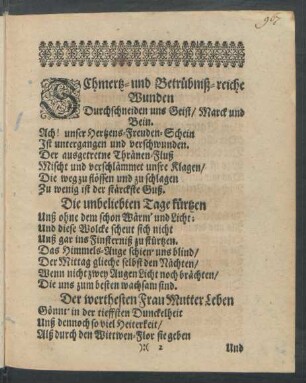 97
SChmertz- und Betrübniß-reiche
Wunden
Durchschneiden uns Geist/ Marck und
Bein.
Ach! unser Hertzens-Freuden-Schein
Ist untergangen und verschwunden.
Der ausgetretne Thränen-Fluß
Mischt und verschlämmet unsre Klagen/
Die weg zu flössen und zu schlagen
Zu wenig ist der stärckste Guß.
Die unbeliebten Tage kürtzen
Unß ohne dem schon Wärm' und Licht:
Und diese Wolcke scheut sich nicht
Unß gar ins Finsterniß zu stürtzen.
Das Himmels-Auge schien uns blind/
Der Mittag gliche selbst den Nächten/
Wenn nicht zwey Augen Licht noch brächten/
Die uns zum besten wachsam sind.
Der werthesten Frau Mutter Leben
Gönnt' in der tieffsten Dunckelheit
Unß dennoch so viel Heiterkeit/
Alß durch den Wittwen-Flor sie geben
)( 2 Und